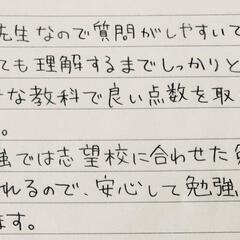 先生なので質問がしやすいで
ても理解するまでしっかりと
な教科で良い点数を取
。
強では志望校に合わせた
れるので、安心して勉強
ます。